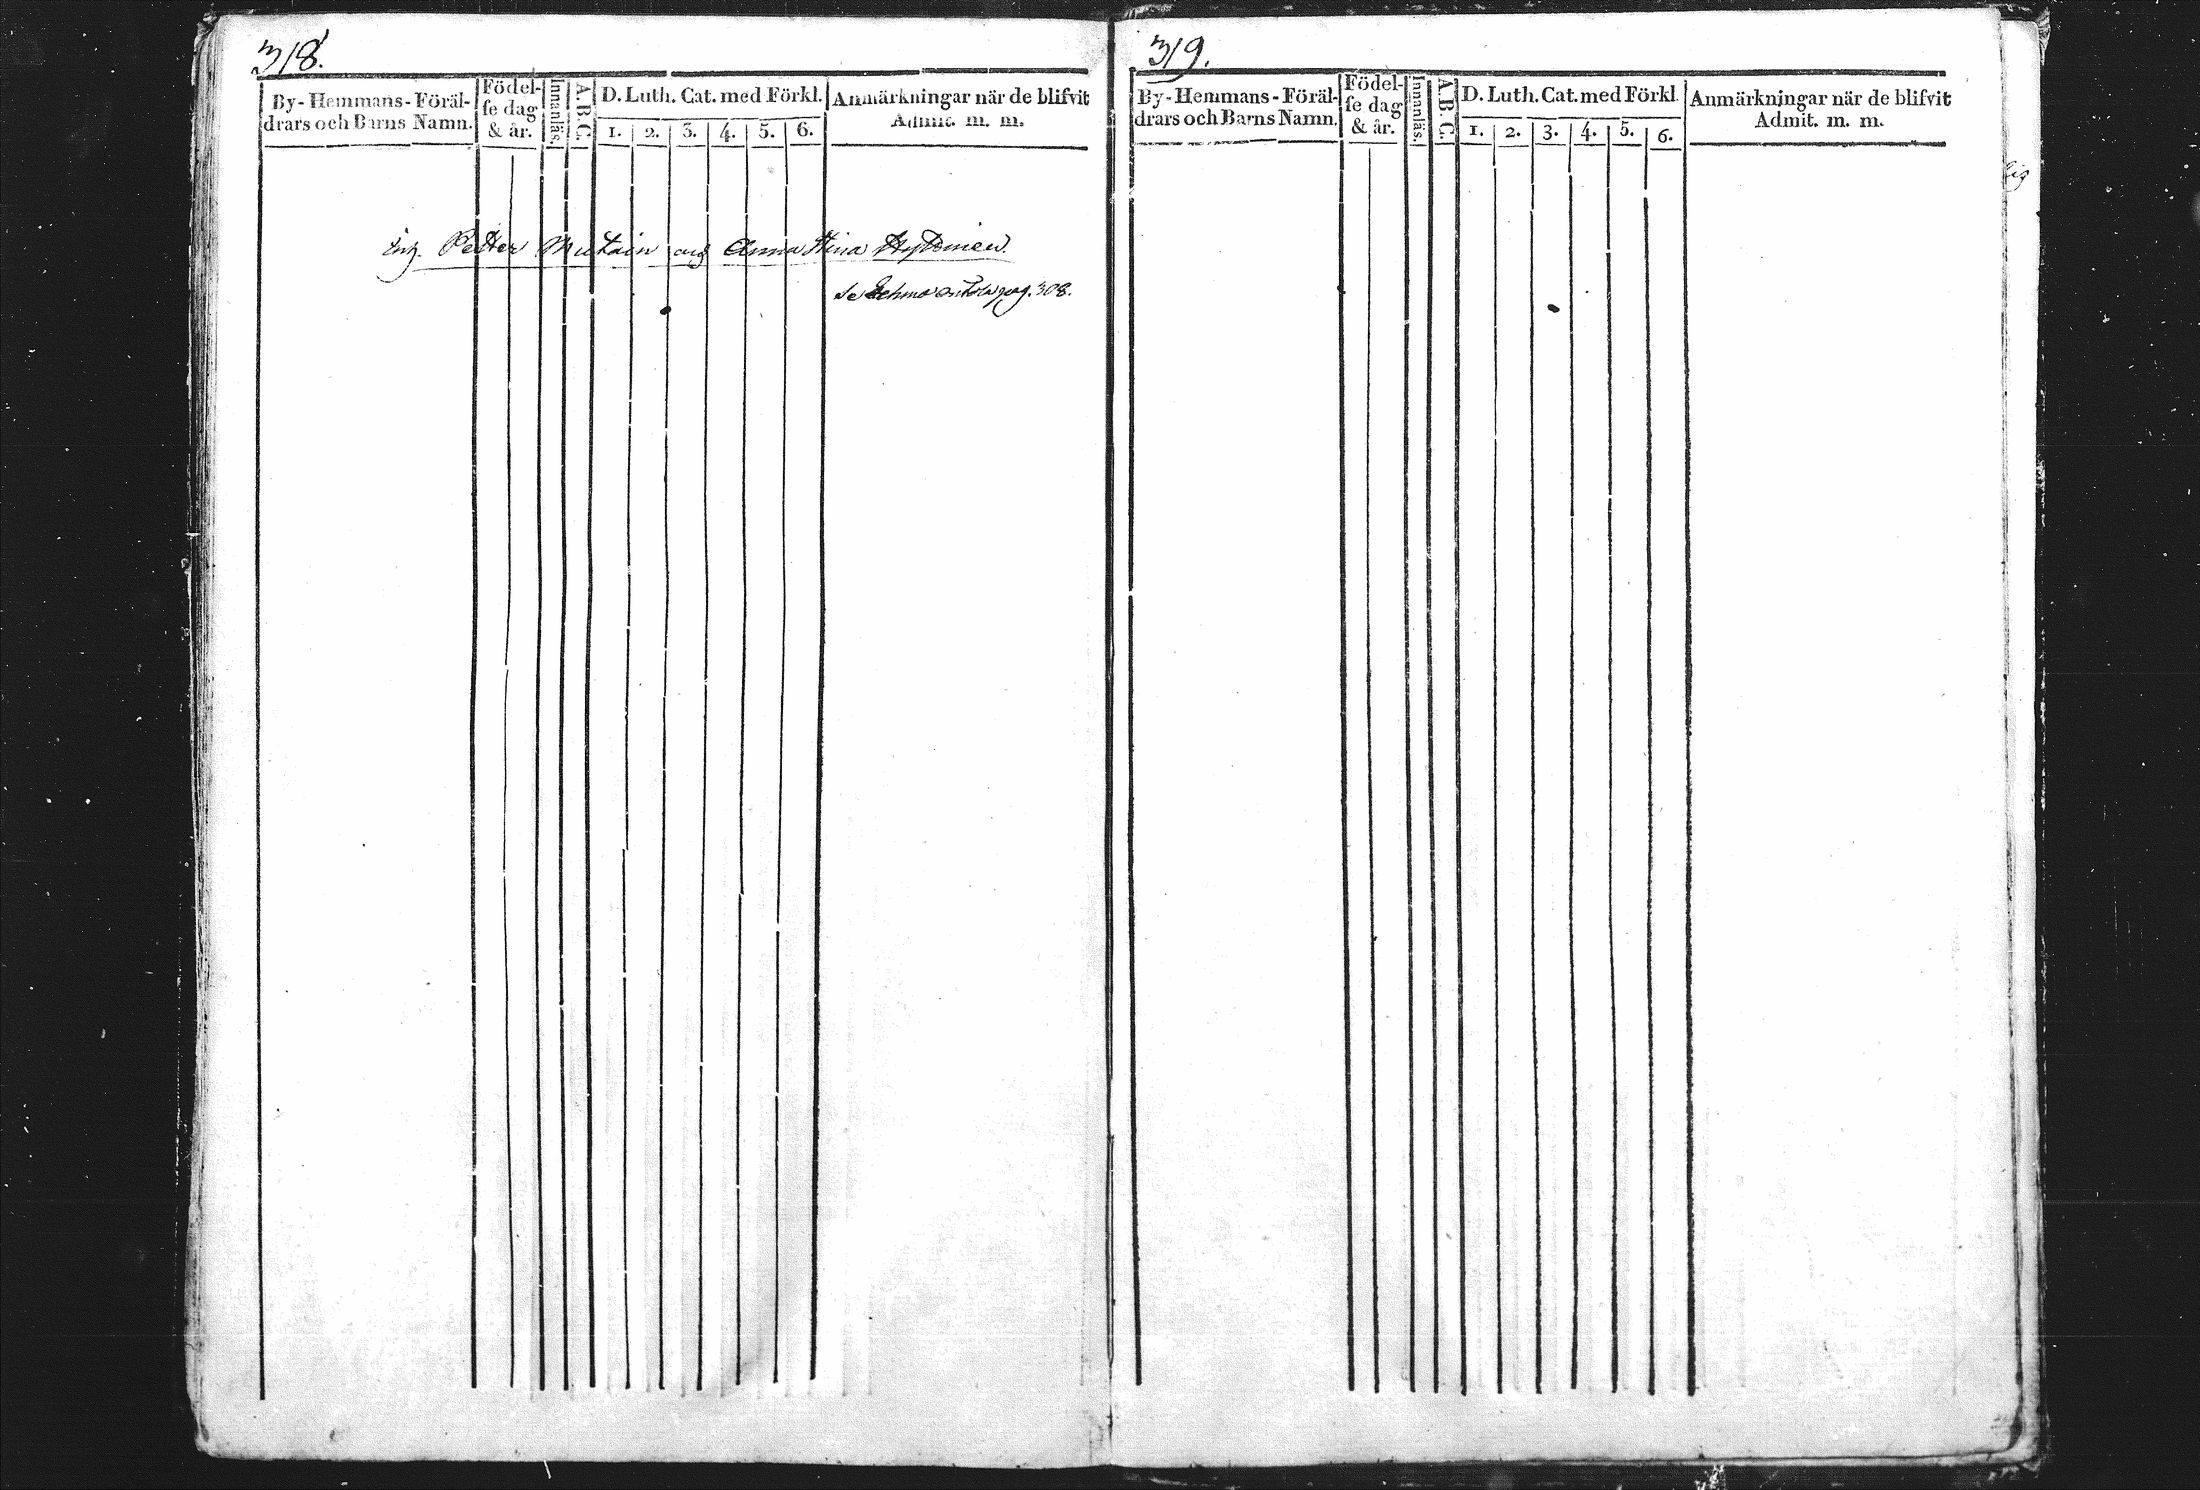 318.
By-Hemmans-Föräl-
drars och Barns Namn.
Födel-
se dag
& år.
Innanläs.
A.B.C.
D. Luth. Cat. med Förkl.
1. 2. 3. 4. 5. 6.
Anmärkningar när de blifvit
Admit. m. m.
Petter Mutain och Anna Stina
se pag. 308.
319.
By-Hemmans-Föräl-
drars och Barns Namn.
Födel-
se dag
& år.
Innanläs.
A.B.C.
D. Luth. Cat. med Förkl.
1. 2. 3. 4. 5. 6.
Anmärkningar när de blifvit
Admit. m. m.